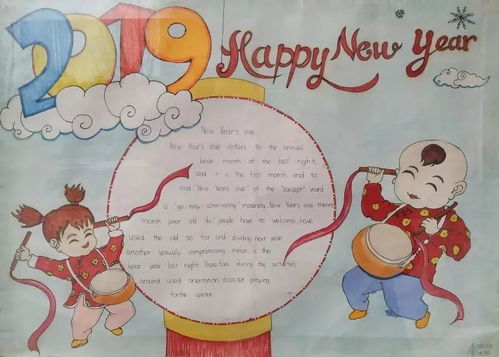 2019 Happy New Year
New Year's eve
New Year's eve refers to the annual
lunar month of the last night,
and it is the first month end to
end. New Year's eve" of the "except" word
is "go; easy; alternating" meaning, New Year's eve meaning
"month poor old do", people have to welcome, have
used the old so far and dividing next year
another sexually compromising mean, is the
lunar year last night. Therefore during the activities
around used orientation, disaster praying
for the center.